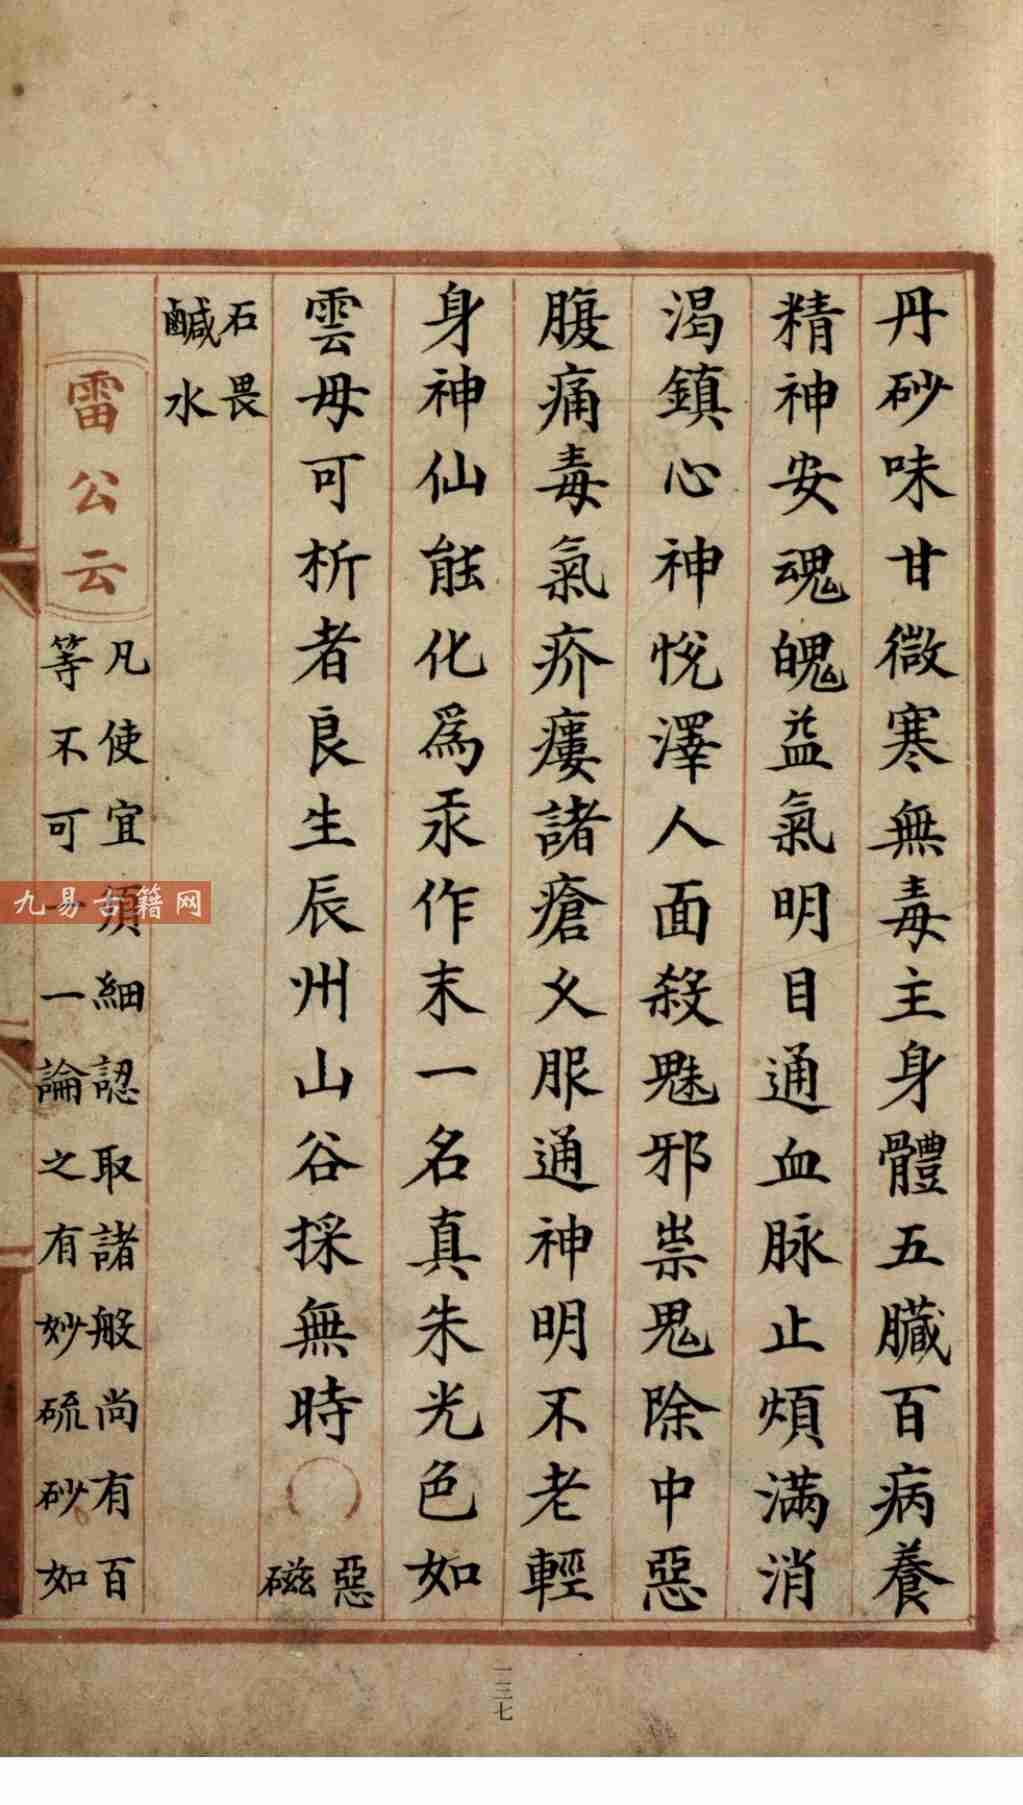 丹砂味甘微寒無毒主身體五臟百病養
精神安魂魄益氣明目通血脉止煩滿消
渴鎮心神悅澤人面殺魅邪祟鬼除中惡
腹痛毒氣疥瘻諸瘡久服通神明不老輕
身神仙能化爲汞作末一名真朱光色如
雲母可析者良生辰州山谷採無時
惡磁
石畏
鹹水
雷公云
凡使宜須細認取諸般尚有百
等不可一一論之有妙硫砂如
一三七
九易古籍网